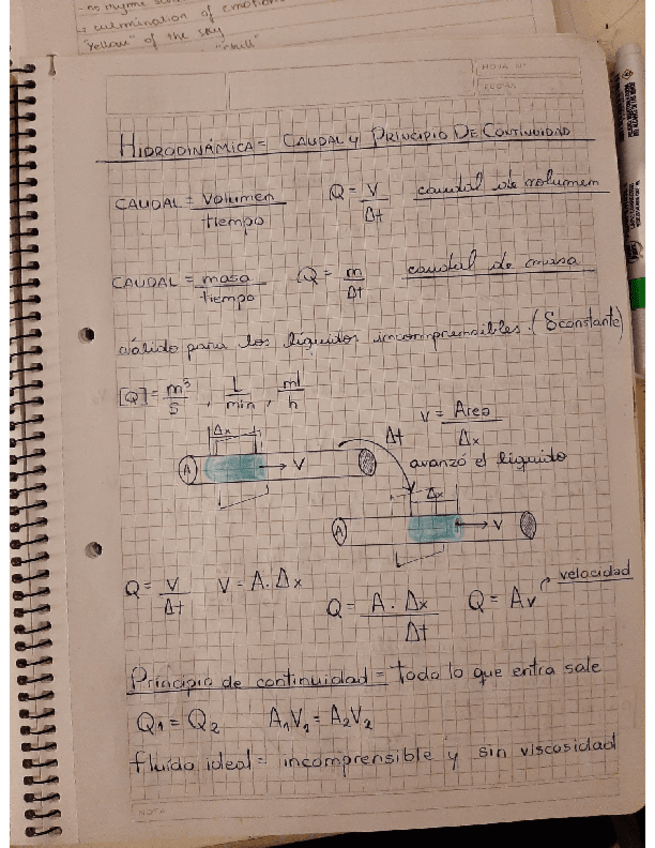 - no rhyme
→ culmination of emotion
"Yellow" of the sky
"chill"
HOJA N°
FECHA
HIDRODINÁMICA = CAUDAL y PRINCIPIO DE CONTINUIDAD
CAUDAL = Volumen / tiempo Q = V / Δt caudal de volumen
CAUDAL = masa / tiempo Q = m / Δt caudal de masa
válido para los líquidos incomprensibles. (δ constante)
[Q] = m³ / s , L / min , ml / h
V = Area / Δx
Δx Δt
A V avanzó el líquido
Δx
A V
Q = V / Δt V = A . Δx
Q = A . Δx / Δt Q = Av velocidad
Principio de continuidad = todo lo que entra sale
Q1 = Q2 A1V1 = A2V2
fluido ideal = incomprensible y sin viscosidad
NOTA